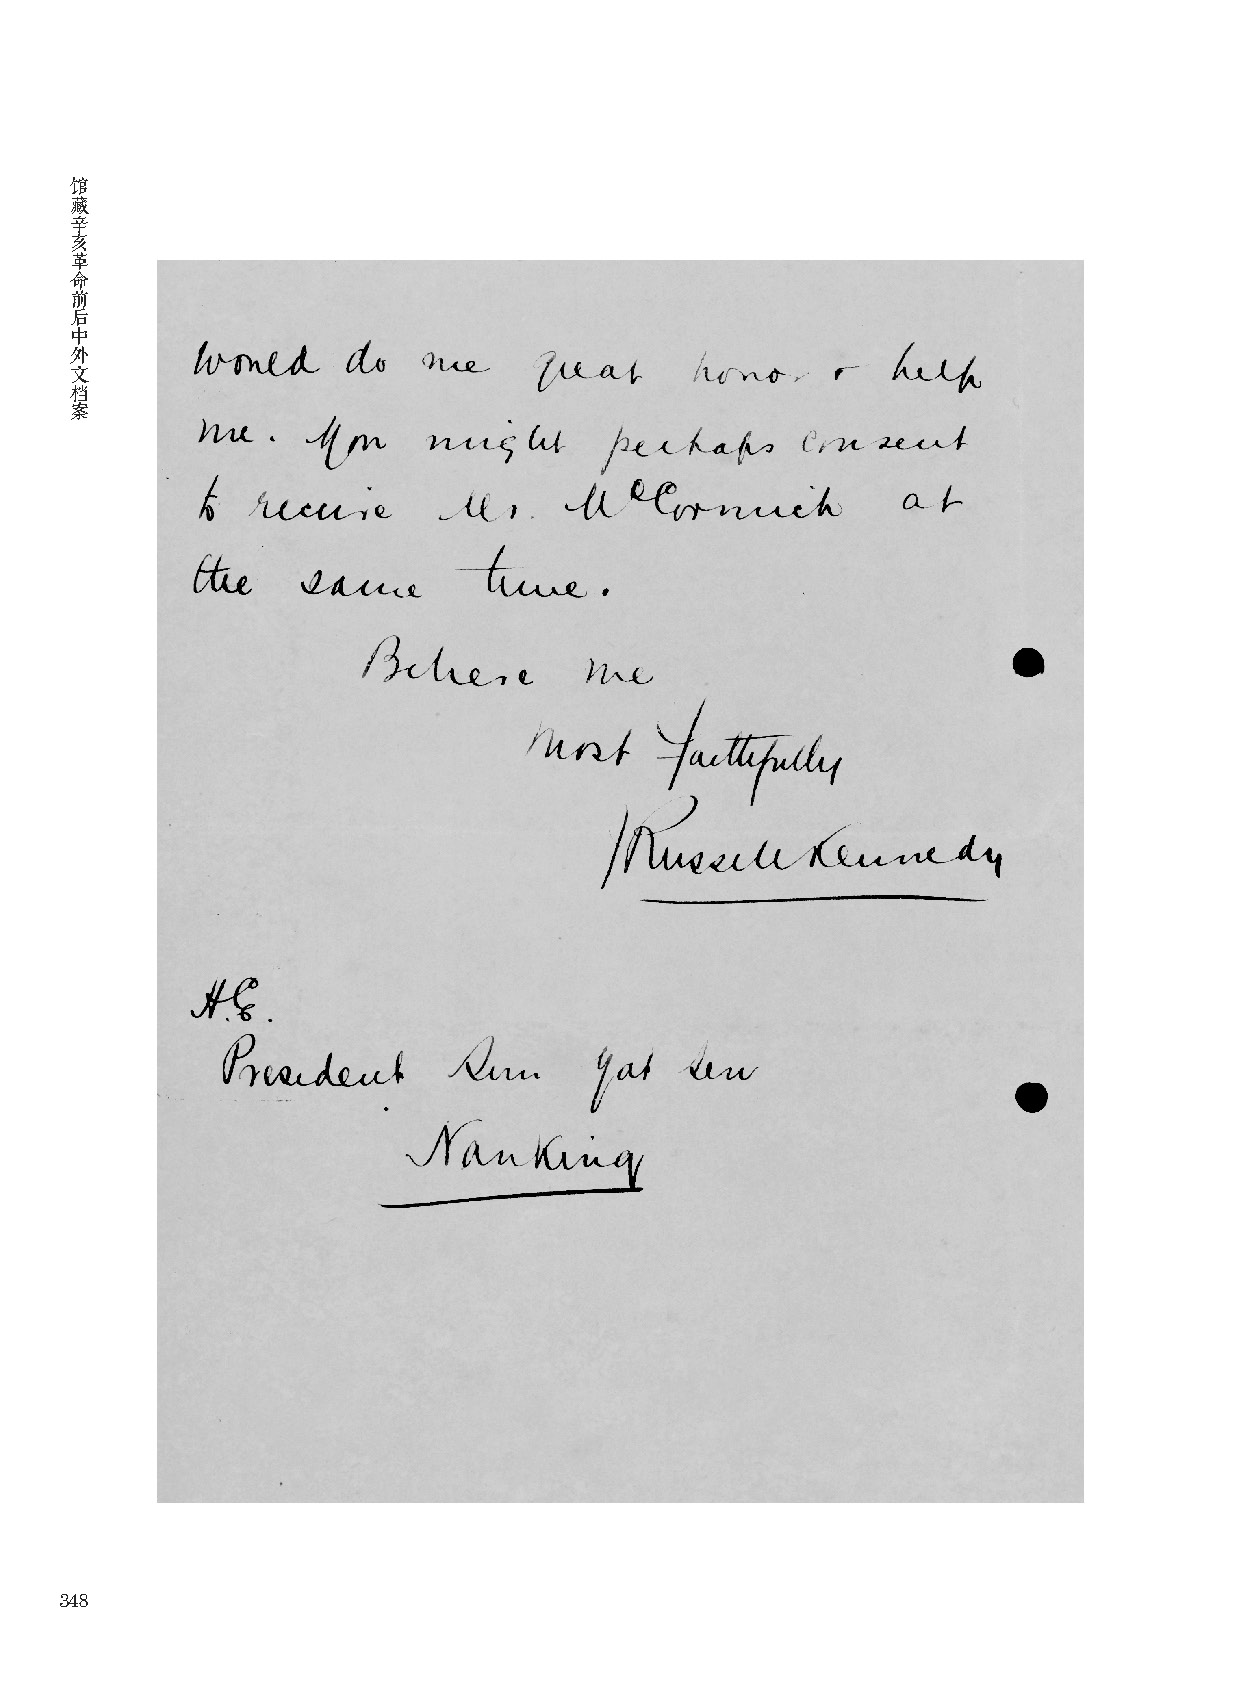 馆藏辛亥革命前后中外文档案
would do me great honor & help
me. You might perhaps consent
to receive Mr. McCormick at
the same time.
Believe me
most faithfully
J Russell Kennedy
H.E.
President Sun Yat Sen
Nanking
348